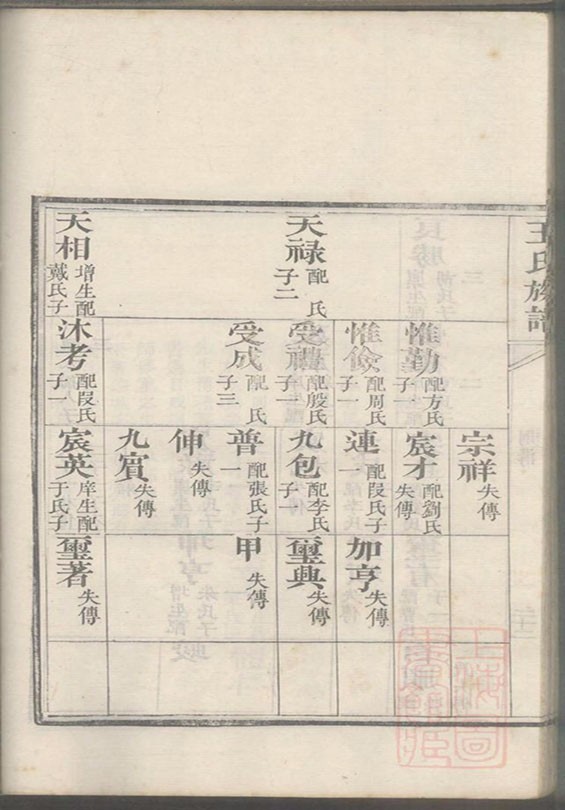 王氏族譜
天祿 配 氏 子二
天相 增生配戴氏子
惟勤 配方氏 子一
惟儉 配周氏 子一
受禮 配殷氏 子一
受成 配 氏 子三
沐考 配段氏 子一
宗祥 失傳
宸才 配劉氏 失傳
連 配段氏子一
九包 配李氏 子一
普 配張氏子一
伸 失傳
九賓 失傳
宸英 庠生配于氏子
加亨 失傳
璽興 失傳
甲 失傳
璽著